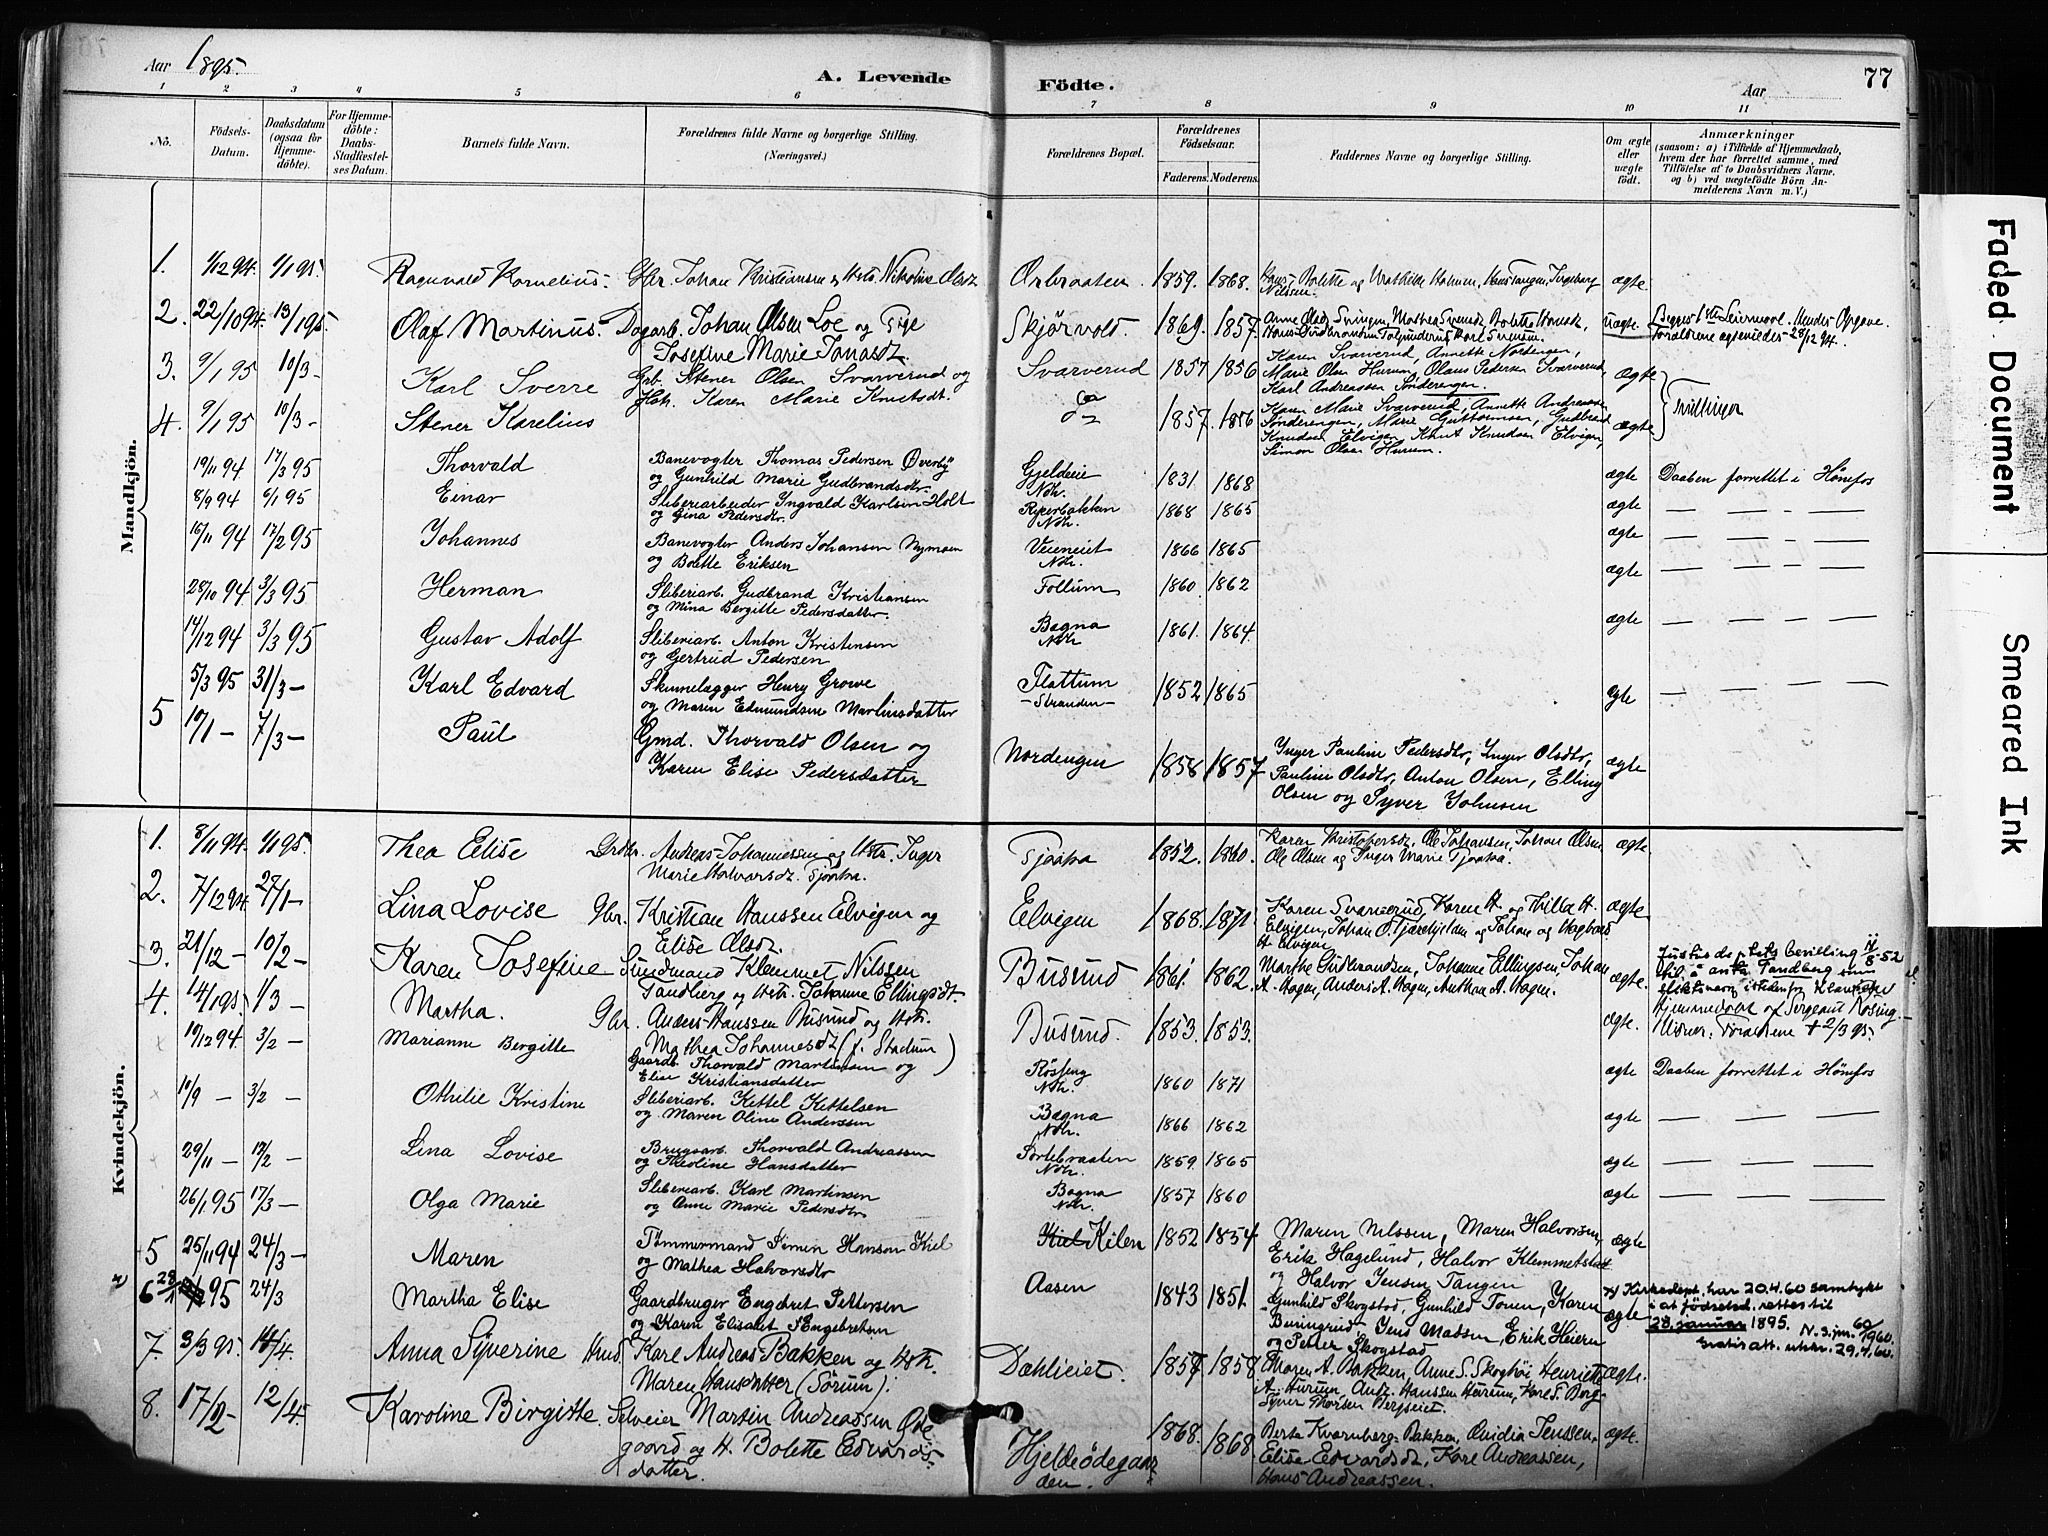 Aar 1895.
A. Levende
Födte.
Aar
77
1 2 3 4 5 6 7 8 9 10 11
No.
Födsels-
Datum.
Daabsdatum
(ogsaa for
Hjemme-
döbte).
For Hjemme-
döbte:
Daabs-
Stadfæstel-
ses Datum.
Barnets fulde Navn.
Forældrenes fulde Navne og borgerlige Stilling.
(Næringsvei.)
Forældrenes Bopæl.
Forældrenes
Födselsaar.
Faderens. Moderens.
Faddernes Navne og borgerlige Stilling.
Om ægte
eller
uægte
födt.
Anmærkninger
(saasom: a) i Tilfælde af Hjemmedaab,
hvem der har forrettet samme, med
Tilföielse af to Daabsvidners Navne,
og b) ved uægtefödte Börn An-
melderens Navn m. V.)
Mandkjön.
1. 1/12 94. 1/1 95. Ragnvald Kornelius. Gbr. Johan Kristiansen 1859. 1868. ægte.
2. 22/10 94. 13/1 95. Olaf Martinus. Dagarb. Johan Olsen Loe og Pige
Josefine Marie Jonasdt. Skjörvold. 1869. 1857. uægte
Forældrene 28/12 94.
3. 9/1 95 10/3 – Karl Sverre Grb. Stener Olsen Svarverud og
Hst. Karen Marie Knutsdt. Svarverud 1857 1856
Karen Svarverud, Annette Nordengen,
Marie Olsen Hurum, Olaus Pedersen Svarverud,
Karl Andreassen Sönderengen. ægte
4. 9/1 95 10/3 – Stener Karelius 1857. 1856
Karen Marie Svarverud, Annette Andreassen
Sönderengen, Marie Guttormsen, Gudbrand
Knudsen Elvigen, Knut Knudsen Elvigen,
Simon Olsen Hurum. ægte Tvillinger
19/11 94 17/3 95 Thorvald Banevogter Thomas Pedersen Överby
og Gunhild Marie Gudbrandsdtr. Gjeldeie
Ndr. 1831 1868 ægte Daaben forrettet i Hönefos
8/9 94 6/1 95 Einar Sliberiarbeider Ingvald Karlsen Holt
og Gina Pedersdtr. Ndr. 1868 1865 ægte — — - —
16/11 94 17/2 95 Johannes Banevogter Anders Johansen Nymoen
og Bolette Eriksen Veieneiet
Ndr. 1866 1865 ægte — — - —
28/10 94 3/3 95 Herman Sliberiarb. Gudbrand Kristiansen
og Mina Bergitte Pedersdatter. Follum 1860 1862 ægte — — — —
14/12 94 3/3 95 Gustav Adolf Sliberiarb. Anton Kristensen
og Gertrud Pedersen Bægna
Ndr 1861. 1864. ægte — — — —
5/3 95 31/3 – Karl Edvard Skinnelægger Henry Growe
og Maren Edmundsine Martinsdatter Flattum
– Stranden – 1852 1865 ægte — — — —
5 10/1 – 7/3 – Paul Gmd. Thorvald Olsen og
Karen Elise Pedersdatter Nordengen 1858 1857
Inger Pauline Pedersdtr, Inger Olsdtr,
Pauline Olsdtr, Anton Olsen, Elling
Olsen og Syver Johnsen ægte
Kvindekjön.
1. 8/11 94. 1/1 95. Thea Elise Andreas Johannessen og Hst. Inger
Marie Halvorsdt. Tjoapa. Tjoapa 1852. 1860.
Karen Kristofersdt, Ole Johansen, Johan Olsen,
Ole Olsen og Inger Marie Tjoapa. ægte
2. 7/12 94. 27/1 – Lina Lovise Gbr. Kristian Hanssen Elvigen og
Elise Olsdt. Elvigen 1868. 1871.
Karen Svarverud, Karen H. og Thilla H.
Elvigen, ægte
3. 21/12 – 10/2 – Karen Josefine Klemmet Nilssen
Tandberg og Hst. Johanne Ellingsdt. Busund 1861. 1862.
Marthe Gudbrandsen, Johanne Ellingsen, Johan
A. Hagen, Anders A. Hagen, Anthon A. Hagen. ægte.
Justisdeptets bevilling
til å anta Tandberg som
slektsnavn istedenfor Klausen
4. 14/1 95. 1/3 – Martha. Gbr. Anders Hanssen Busund og Hst.
Mathea Johannesdt (f. Stadum) Busund. 1853. 1853. ægte.
Hjemmedøbt af Sergeant Rösing
2/3 95.
10/12 94. 3/2 – Marianne Bergitte Gaardb. Thorvald Martinsen og
Elise Kristiansdatter
Ndr. 1860 1871 ægte Daaben forrettet i Hönefos
10/9 – 3/2 – Othilie Kristine Sliberiarb. Kittel Kittelsen
og Maren Oline Anderssen Bægna
Ndr. 1866 1862 ægte — — —
29/11 – 17/2 – Lina Lovise Brugsarb. Thorvald Andreassen
og Theoline Hansdatter Sortebraaten
Ndr. 1859. 1865 ægte — — —
26/1 95 17/3 – Olga Marie Sliberiarb. Karl Martinsen
og Anne Marie Pedersdtr Bægna
Ndr. 1857 1860 ægte — — —
5 25/11 94 24/3 – Maren Tömmermand Simen Hansen Kiel
og Mathea Halvorsdtr Kiel Kilen 1852 1854
Maren Nilssen, Maren Halvorsen,
Erik Hagelund, Halvor Klemmetsrud
og Halvor Jensen Tangen ægte
x) 6 28/1 95 24/3 Martha Elise Gaardbruger Engebret Pettersen
og Karen Elisabet Engebretsen Aasen 1843 1851
Gunhild Skogstad, Gunhild Tonen, Karen
Buringrud, Jens Madsen, Erik Heieren
og Petter Skogstad ægte
x) Kirkedept. har 20.4.60 samtykt
i at födselsd. rettes til
28. januar 1895. N.s.jnr. 60/1960.
Gratis att. utskr. 29.4.60.
7. 3/3 95. 14/4. Anna Syverine Hmd. Karl Andreas Bakken og Hst.
Maren Hansdatter (Sörum). Dæhlieiet. 1857 1858
Maren A. Bakken, Anne S. Skogböi Henriette
A. Hurum, Andr. Hanssen Hurum, Karl S. Berg-
ægte.
8. 17/2 – 12/4 Karoline Birgitte. Selveier Martin Andreassen Öde
gaard og H. Bolette Edvards-
datter. Hjeldeödegaar-
den. 1868. 1868.
Berta Kvernberg-Bakken, Ovidia Jenssen,
Elise Edvardsdt, Karl Andreassen,
Hans Andreassen. ægte.
Faded Document
Smeared Ink